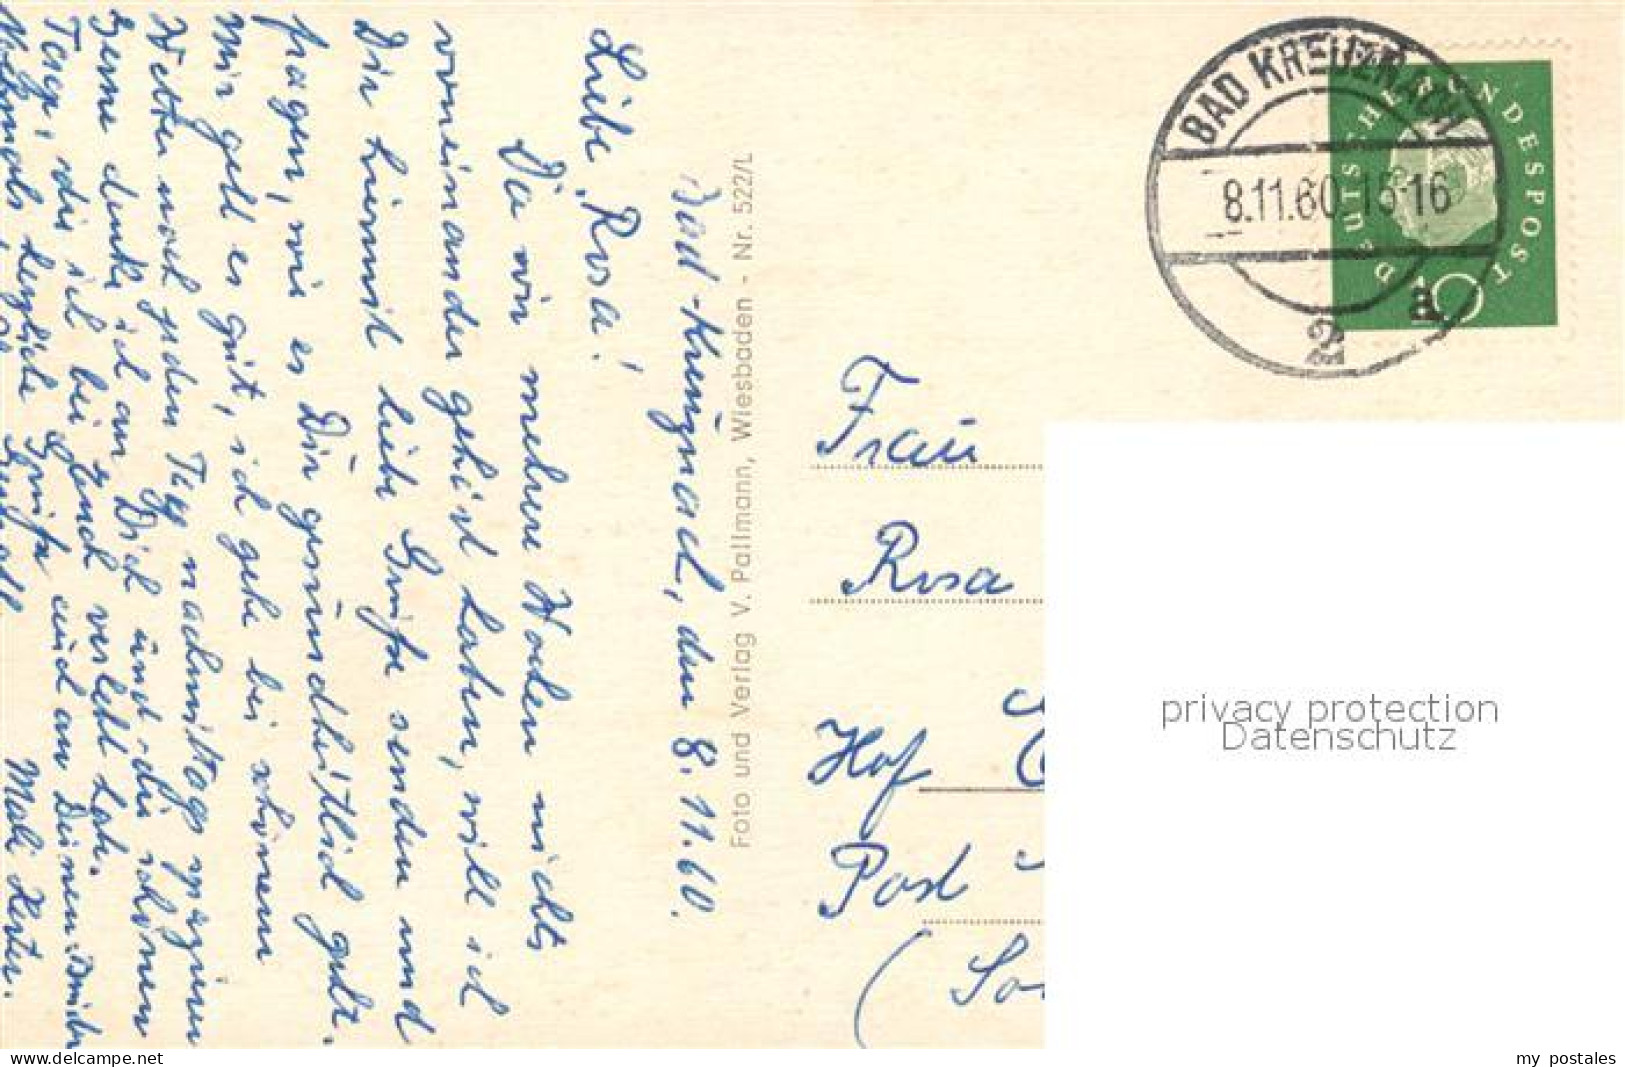 Bad-Kreuznach, den 8.11.60.
Liebe Rosa!
Da wir mehrere Wochen nichts
voneinander gehört haben, will ich
Dir hiermit liebe Grüße senden und
fragen, wie es Dir gesundheitlich geht.
Mir geht es gut, ich gehe bei schönem
Wetter noch jeden Tag nachmittags spazieren
Gerne denke ich an Dich und die schönen
Tage, die ich bei Euch verlebt hab.
Nochmals herzliche Grüße auch an Deinen Bruder
Foto und Verlag V. Pallmann, Wiesbaden - Nr. 522/L
BAD KREUZNACH
8.11.60.15-16
a
2
DEUTSCHE BUNDESPOST
10
Frau
Rosa
Hof
Post
(So
privacy protection
Datenschutz
www.delcampe.net
my_postales